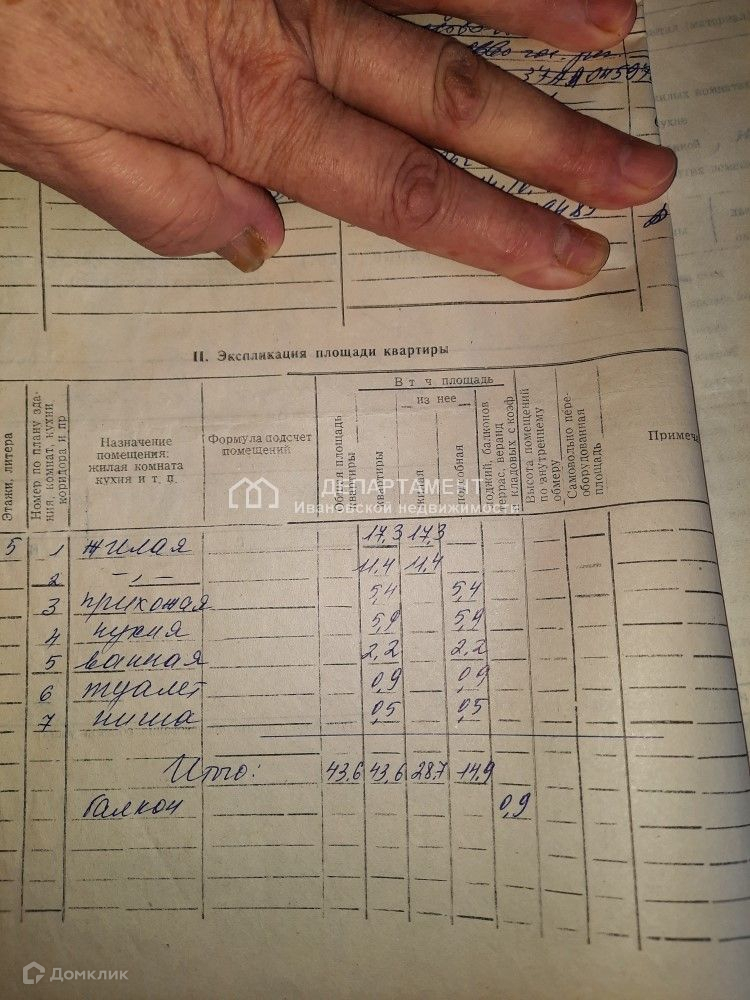 II. Экспликация площади квартиры
Этажи, литера
Номер по плану зда-
ния, комнат, кухни
коридора и пр
Назначение
помещения:
жилая комната
кухня и т. п.
Формула подсчет
помещений
Общая площадь
квартиры
В т ч. площадь
квартиры
из нее
жилая
подсобная
лоджий, балконов
террас, веранд
кладовых с коэф
Высота помещений
по внутреннему
обмеру
Самовольно пере-
оборудованная
площадь
Примеча
ДЕПАРТАМЕНТ
Ивановской недвижимости
5 1 жилая 17,3 17,3
2 —„— 11,4 11,4
3 прихожая 5,4 5,4
4 кухня 5,9 5,9
5 ванная 2,2 2,2
6 туалет 0,9 0,9
7 ниша 0,5 0,5
Итого: 43,6 43,6 28,7 14,9
балкон 0,9
Домклик